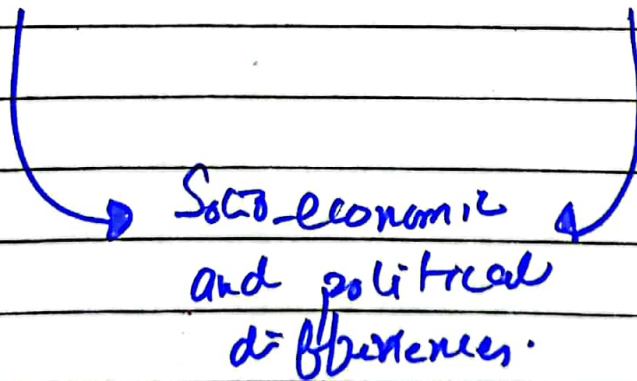 Socio-economic
and political
differences.